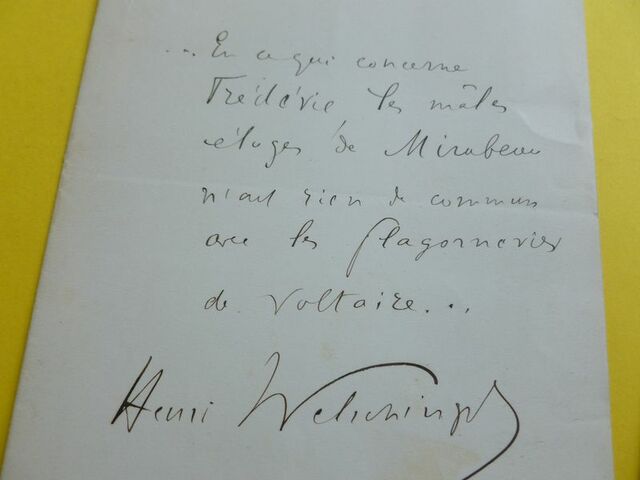 ... En ce qui concerne
Frédéric les mâles
éloges de Mirabeau
n'ont rien de commun
avec les flagorneries
de Voltaire...
Henri Welschinger